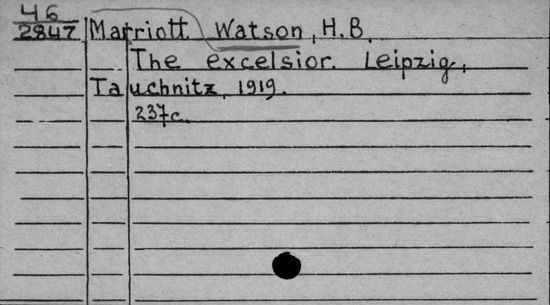 46
2847 Marriott Watson, H.B.
The excelsior. Leipzig,
Tauchnitz, 1919.
237c.